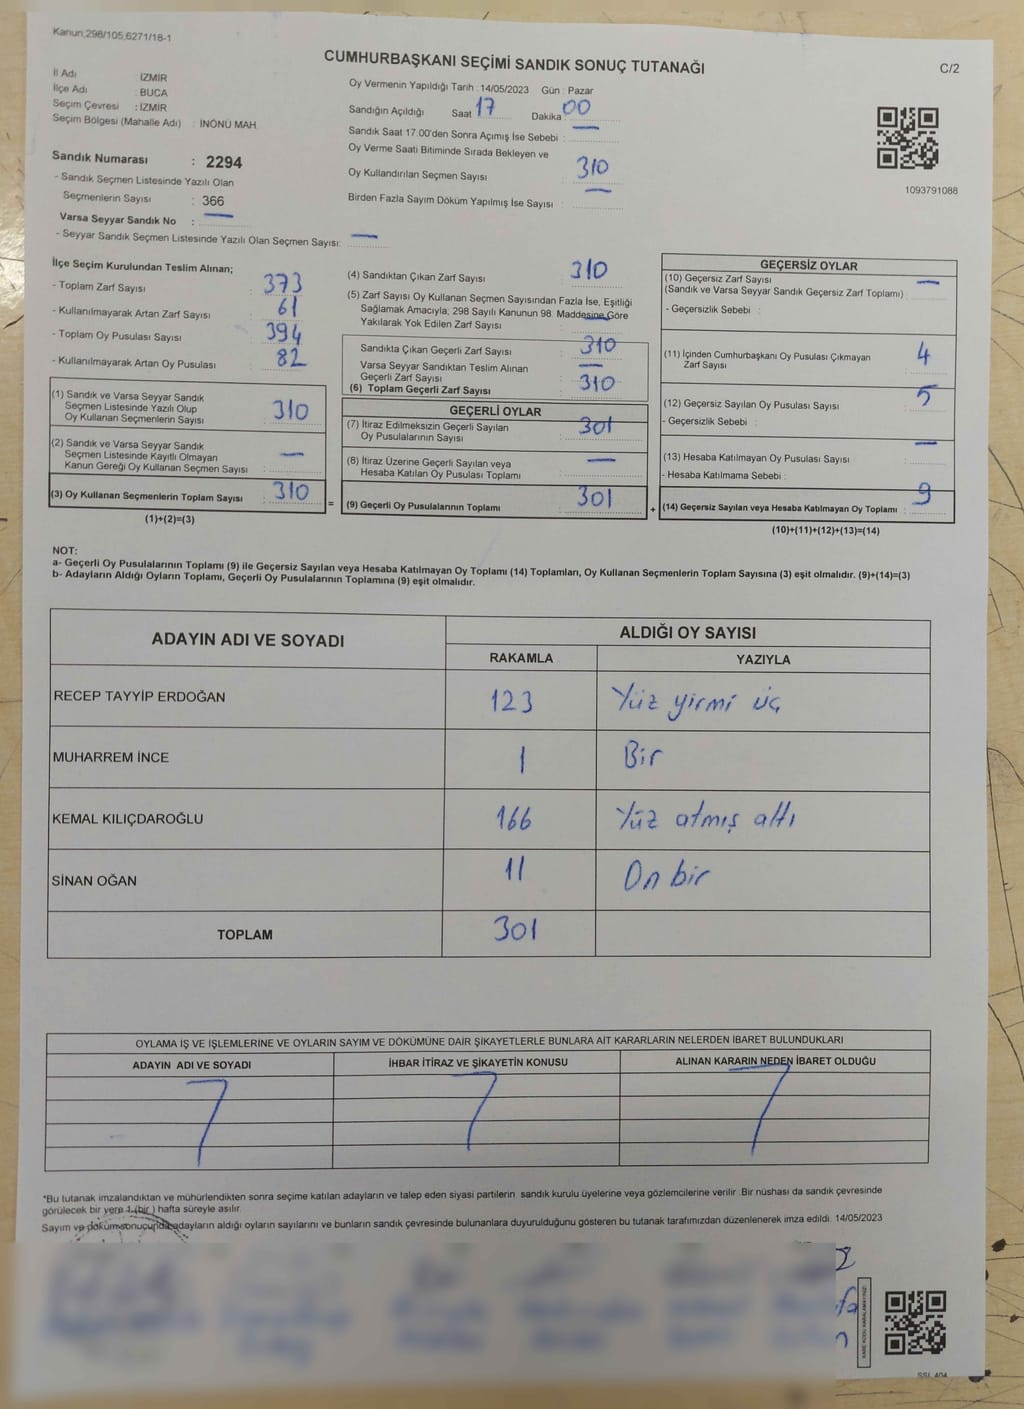 Kanun 298/105,6271/18-1
CUMHURBAŞKANI SEÇİMİ SANDIK SONUÇ TUTANAĞI
C/2
İl Adı : İZMİR
İlçe Adı : BUCA
Seçim Çevresi : İZMİR
Seçim Bölgesi (Mahalle Adı) : İNÖNÜ MAH.
Sandık Numarası : 2294
- Sandık Seçmen Listesinde Yazılı Olan
Seçmenlerin Sayısı : 366
Varsa Seyyar Sandık No : —
- Seyyar Sandık Seçmen Listesinde Yazılı Olan Seçmen Sayısı: —
Oy Vermenin Yapıldığı Tarih : 14/05/2023 Gün : Pazar
Sandığın Açıldığı Saat 17 Dakika 00
Sandık Saat 17:00'den Sonra Açımış İse Sebebi : —
Oy Verme Saati Bitiminde Sırada Bekleyen ve
Oy Kullandırılan Seçmen Sayısı : 310
Birden Fazla Sayım Döküm Yapılmış İse Sayısı : —
1093791088
İlçe Seçim Kurulundan Teslim Alınan;
- Toplam Zarf Sayısı : 373
- Kullanılmayarak Artan Zarf Sayısı : 61
- Toplam Oy Pusulası Sayısı : 394
- Kullanılmayarak Artan Oy Pusulası : 82
(1) Sandık ve Varsa Seyyar Sandık
Seçmen Listesinde Yazılı Olup
Oy Kullanan Seçmenlerin Sayısı : 310
(2) Sandık ve Varsa Seyyar Sandık
Seçmen Listesinde Kayıtlı Olmayan
Kanun Gereği Oy Kullanan Seçmen Sayısı : —
(3) Oy Kullanan Seçmenlerin Toplam Sayısı : 310
(1)+(2)=(3)
=
(4) Sandıktan Çıkan Zarf Sayısı : 310
(5) Zarf Sayısı Oy Kullanan Seçmen Sayısından Fazla İse, Eşitliği
Sağlamak Amacıyla; 298 Sayılı Kanunun 98. Maddesine Göre
Yakılarak Yok Edilen Zarf Sayısı : —
Sandıkta Çıkan Geçerli Zarf Sayısı : 310
Varsa Seyyar Sandıktan Teslim Alınan
Geçerli Zarf Sayısı : —
(6) Toplam Geçerli Zarf Sayısı : 310
GEÇERLİ OYLAR
(7) İtiraz Edilmeksizin Geçerli Sayılan
Oy Pusulalarının Sayısı : 301
(8) İtiraz Üzerine Geçerli Sayılan veya
Hesaba Katılan Oy Pusulası Toplamı : —
(9) Geçerli Oy Pusulalarının Toplamı : 301
+
GEÇERSİZ OYLAR
(10) Geçersiz Zarf Sayısı : —
(Sandık ve Varsa Seyyar Sandık Geçersiz Zarf Toplamı)
- Geçersizlik Sebebi :
(11) İçinden Cumhurbaşkanı Oy Pusulası Çıkmayan
Zarf Sayısı : 4
(12) Geçersiz Sayılan Oy Pusulası Sayısı : 5
- Geçersizlik Sebebi :
(13) Hesaba Katılmayan Oy Pusulası Sayısı : —
- Hesaba Katılmama Sebebi :
(14) Geçersiz Sayılan veya Hesaba Katılmayan Oy Toplamı : 9
(10)+(11)+(12)+(13)=(14)
NOT:
a- Geçerli Oy Pusulalarının Toplamı (9) ile Geçersiz Sayılan veya Hesaba Katılmayan Oy Toplamı (14) Toplamları, Oy Kullanan Seçmenlerin Toplam Sayısına (3) eşit olmalıdır. (9)+(14)=(3)
b- Adayların Aldığı Oyların Toplamı, Geçerli Oy Pusulalarının Toplamına (9) eşit olmalıdır.
ADAYIN ADI VE SOYADI
ALDIĞI OY SAYISI
RAKAMLA YAZIYLA
RECEP TAYYİP ERDOĞAN 123 Yüz yirmi üç
MUHARREM İNCE 1 Bir
KEMAL KILIÇDAROĞLU 166 Yüz atmış altı
SİNAN OĞAN 11 On bir
TOPLAM 301
OYLAMA İŞ VE İŞLEMLERİNE VE OYLARIN SAYIM VE DÖKÜMÜNE DAİR ŞİKAYETLERLE BUNLARA AİT KARARLARIN NELERDEN İBARET BULUNDUKLARI
ADAYIN ADI VE SOYADI İHBAR İTİRAZ VE ŞİKAYETİN KONUSU ALINAN KARARIN NEDEN İBARET OLDUĞU
*Bu tutanak imzalandıktan ve mühürlendikten sonra seçime katılan adayların ve talep eden siyasi partilerin sandık kurulu üyelerine veya gözlemcilerine verilir. Bir nüshası da sandık çevresinde
görülecek bir yere 1 (bir) hafta süreyle asılır.
Sayım ve döküm sonucunda adayların aldığı oyların sayılarını ve bunların sandık çevresinde bulunanlara duyurulduğunu gösteren bu tutanak tarafımızdan düzenlenerek imza edildi. 14/05/2023